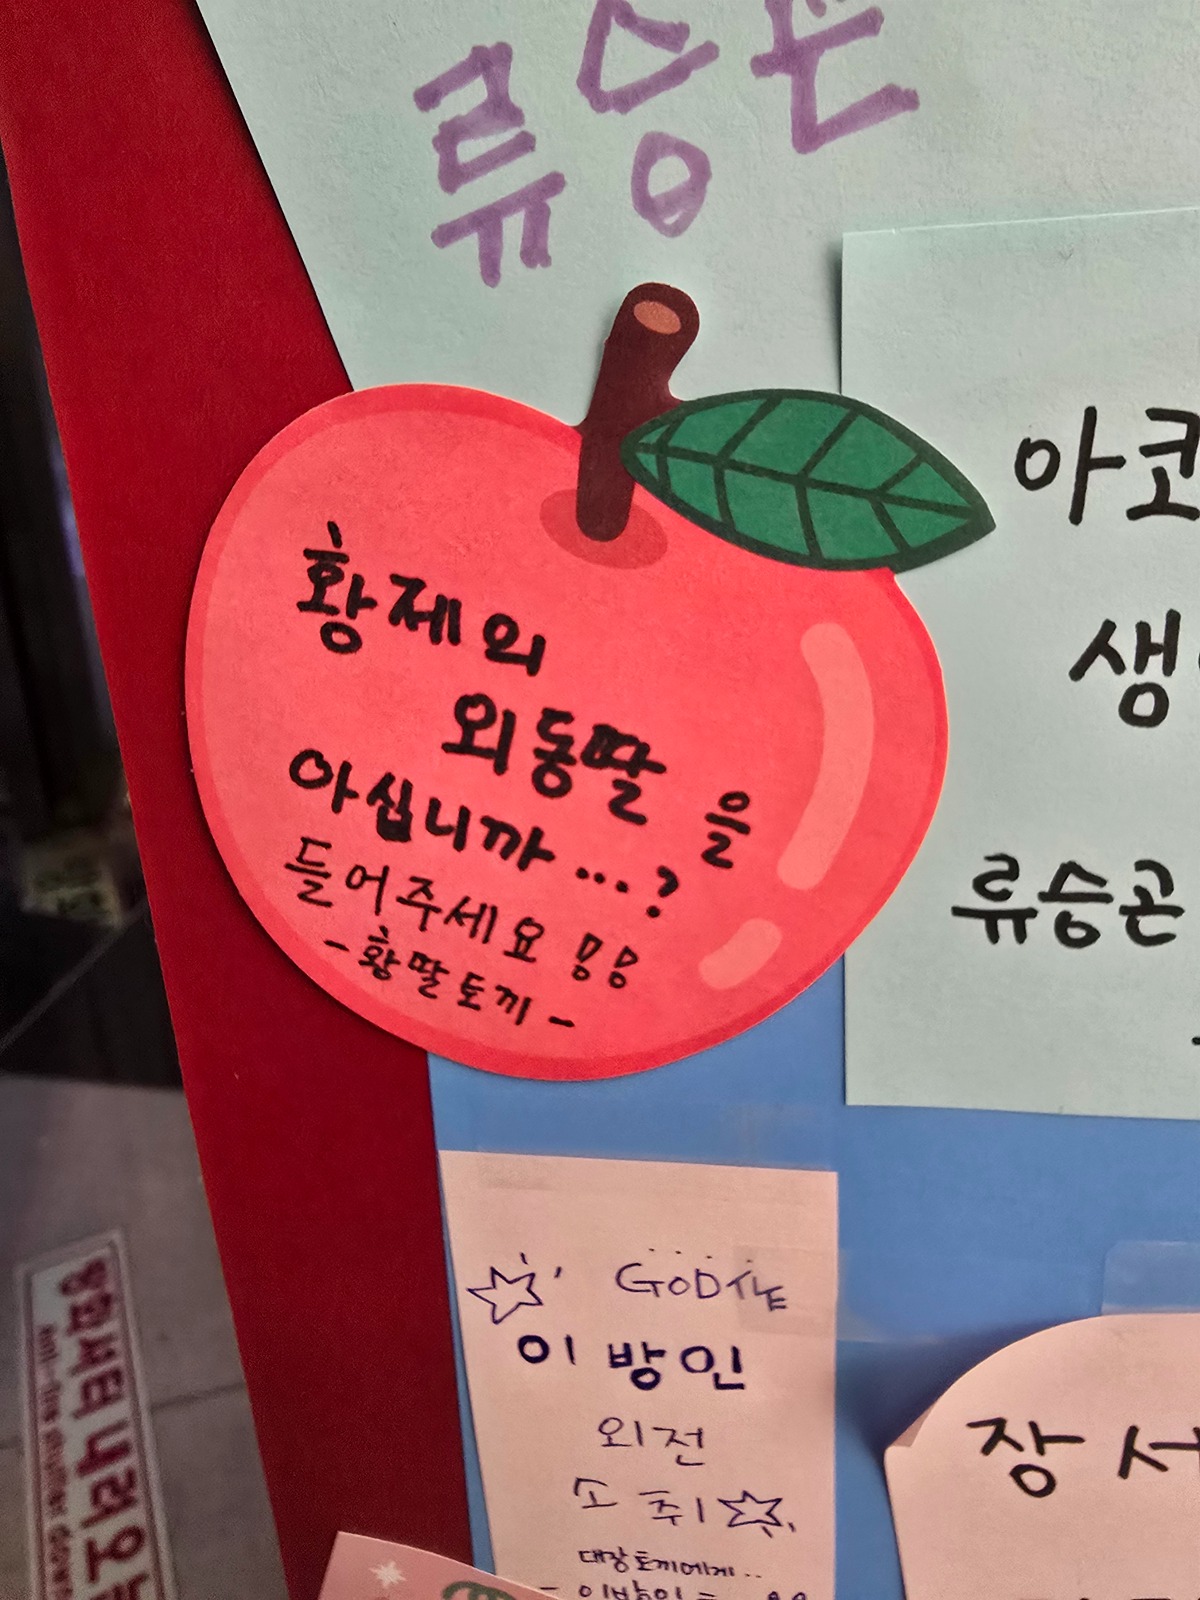 류승곤
황제의
외동딸을
아십니까...?
들어주세요!!
-황딸토끼-
아코
생
류승곤
GOD作
이방인
외전
소취
대장토끼에게..
장서
방화셔터 내려오는